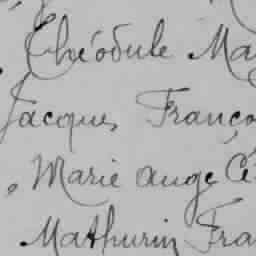 Théodule Ma
Jacques, Franço
Marie ange Cé
Mathurin Fra